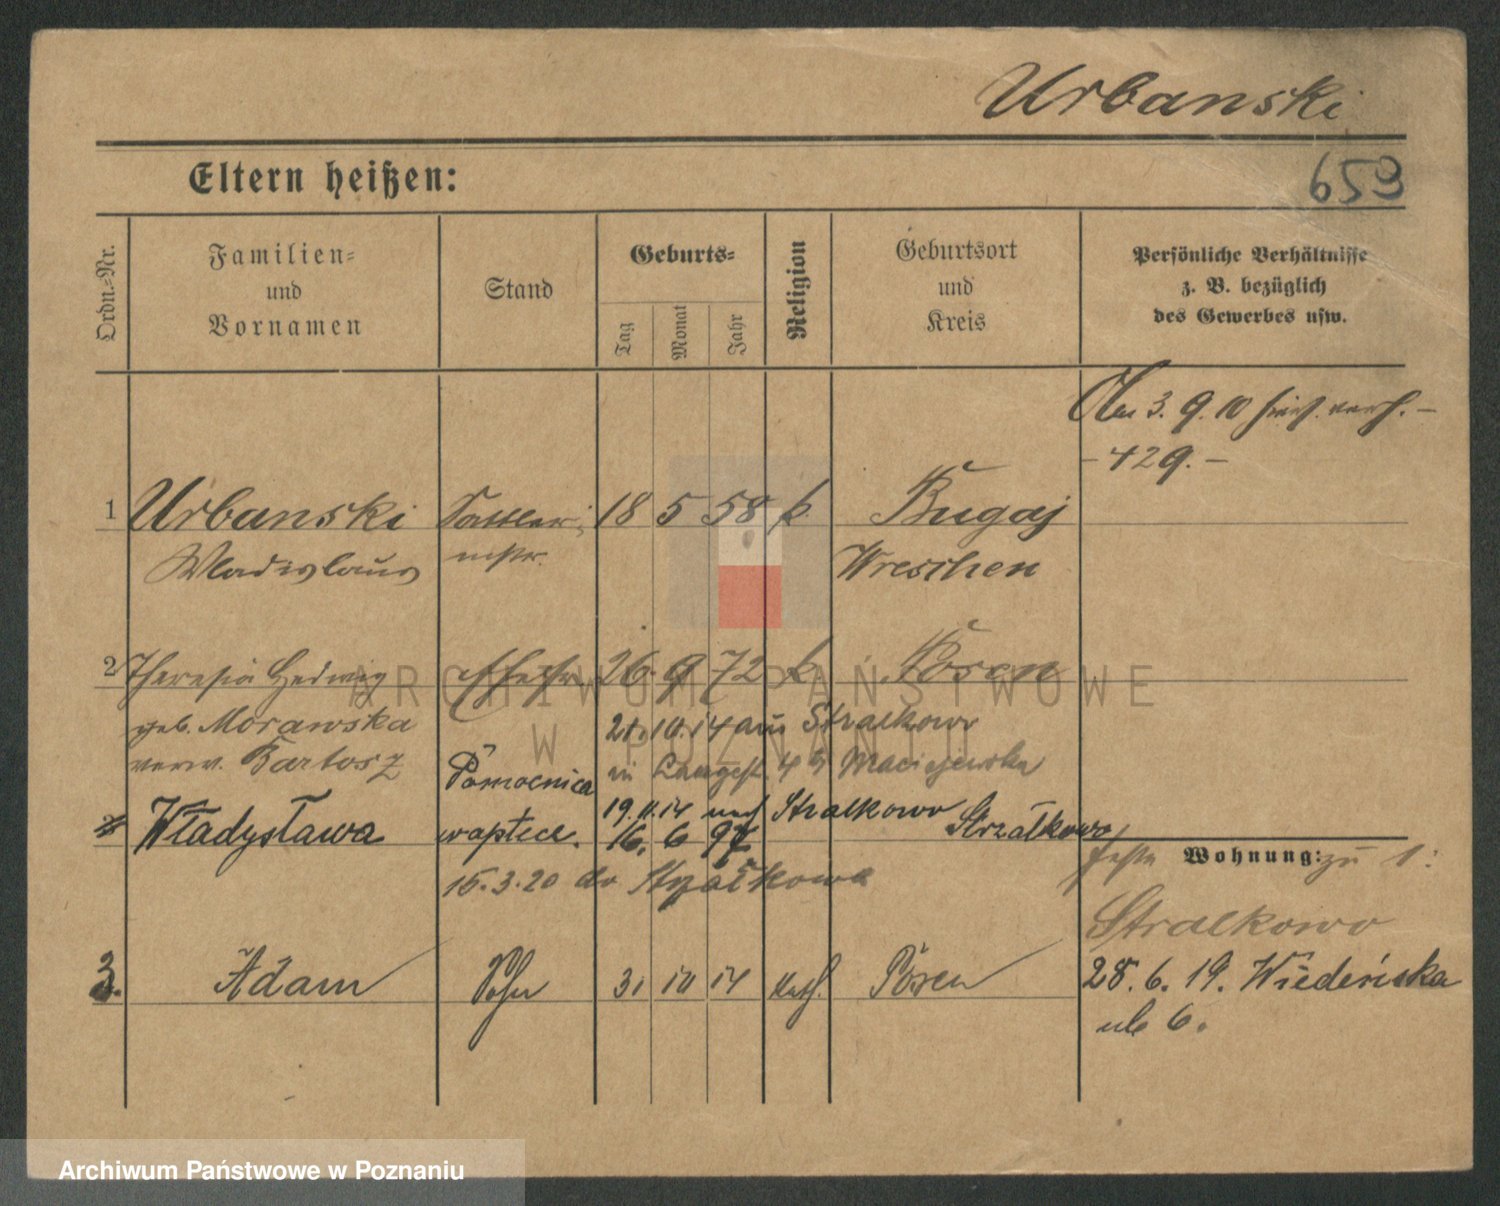 Urbanski
Eltern heißen:
659
Ordn.-Nr.
Familien-
und
Vornamen
Stand
Geburts-
Tag
Monat
Jahr
Religion
Geburtsort
und
Kreis
Persönliche Verhältnisse
z. B. bezüglich
des Gewerbes usw.
3. 9. 10
- 429. -
1 Urbanski Sattler 18 5 58 k. Bugaj
Wladislaus mstr. Wreschen
2 Theresia Hedwig Ehefr. 26. 9 72 k. Posen
geb. Morawska 21. 10. 14 aus Stralkowo
verw. Bartosz in 4 Maciejewska
Pomocnica
19. 11. 14 nach Stralkowo
Władysława w aptece. 16. 6 97 Strzałkowo
15. 3. 20 do
feste Wohnung: zu 1:
Stralkowo
3. Adam Sohn 31 10 14 kath. Posen
28. 6. 19. Wiedeńska
ul. 6.
ARCHIWUM PAŃSTWOWE
W POZNANIU
Archiwum Państwowe w Poznaniu